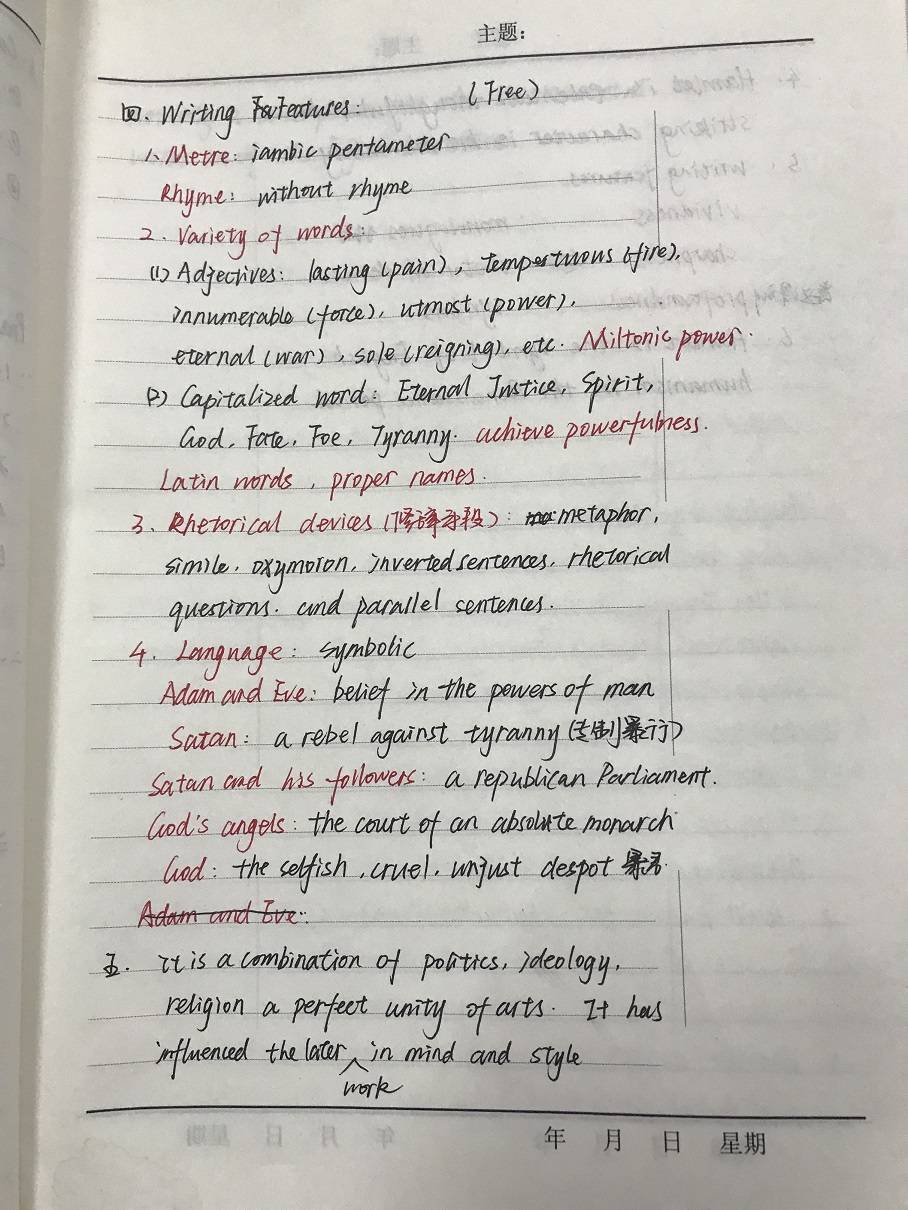 主题:
四. Writing Features: (Free)
1、Metre: iambic pentameter
Rhyme: without rhyme
2. Variety of words:
(1) Adjectives: lasting (pain), tempertuous (fire),
innumerable (force), utmost (power),
eternal (war), sole (reigning), etc. Miltonic power.
(2) Capitalized word: Eternal Justice, Spirit,
God, Fate, Foe, Tyranny. achieve powerfulness.
Latin words, proper names.
3、Rhetorical devices (修辞手段): metaphor,
simile, oxymoron, inverted sentences, rhetorical
questions, and parallel sentences.
4. Language: symbolic
Adam and Eve: belief in the powers of man
Satan: a rebel against tyranny (专制暴行)
Satan and his followers: a republican Parliament.
God's angels: the court of an absolute monarch
God: the selfish, cruel, unjust despot 暴君.
Adam and Eve:
五. It is a combination of politics, ideology,
religion a perfect unity of arts. It has
influenced the later work in mind and style
年 月 日 星期